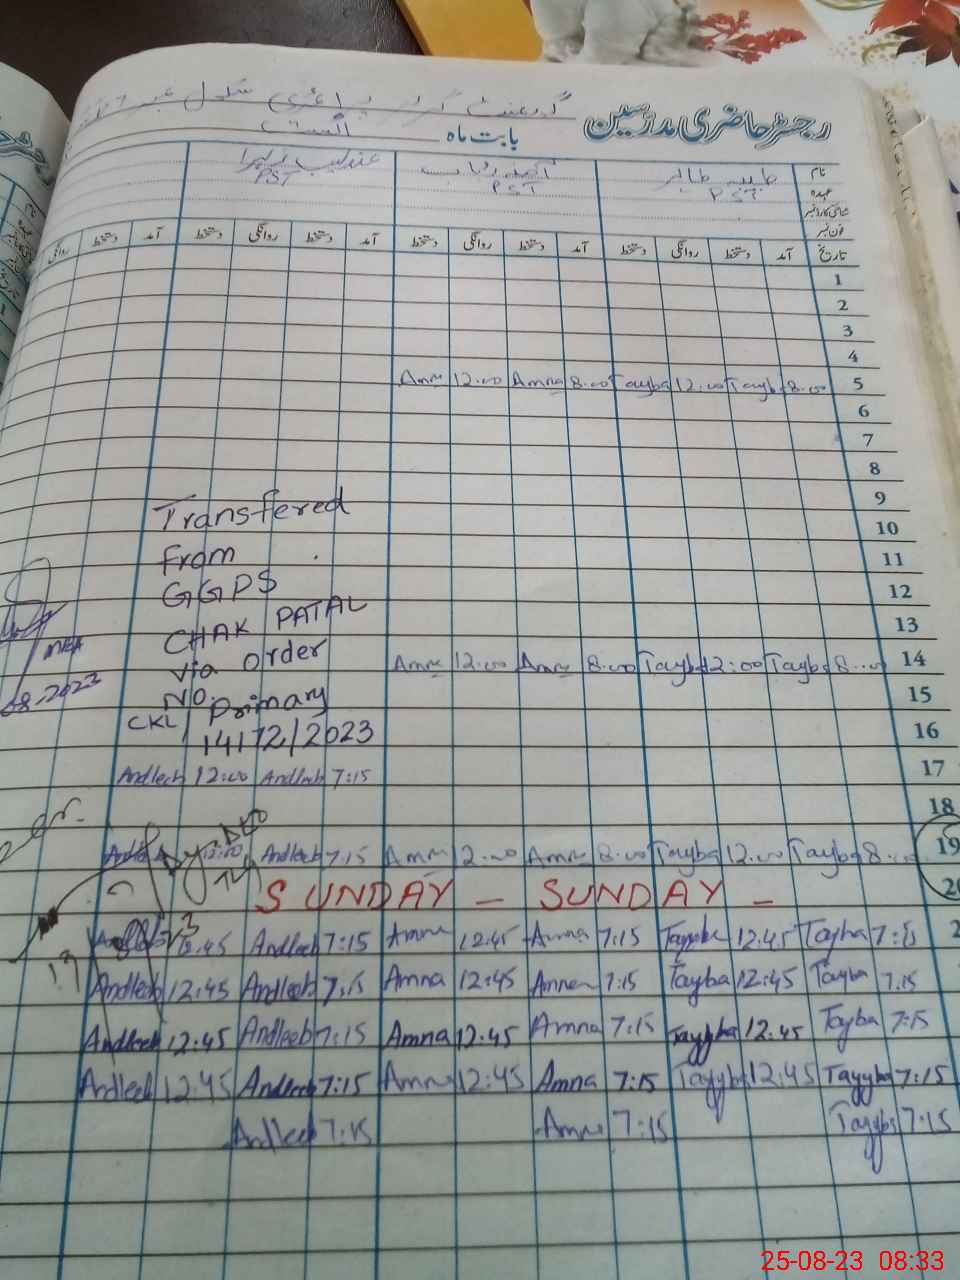 رجسٹر حاضری مدرسین
بابت ماہ اگست
نام طیبہ طاہر آمنہ رباب عندلیب زہرا
عہدہ PST PST PST
شناختی کارڈ نمبر
فون نمبر
تاریخ آمد دستخط روانگی دستخط آمد دستخط روانگی دستخط آمد دستخط روانگی دستخط آمد دستخط روانگی
1
2
3
4
Amn 12:00 Amna 8:00 Tayba 12:00 Tayb 8:00 5
6
7
8
9
Transfered
10
From
11
GGPS
12
CHAK PATAL
13
via Order
Amn 12:00 Amn 8:00 Tayb 12:00 Tayba 8:00 14
MEA
08-2023
NO.
15
CKL/Primary
16
14172/2023
Andleeb 12:00 Andleeb 7:15 17
18
Andle 12:00 Andleeb 7:15 Amn 12:00 Amn 8:00 Tayba 12:00 Tayba 8:00 19
SUNDAY - SUNDAY - 20
12:45 Andleeb 7:15 Amna 12:45 Amna 7:15 Tayyba 12:45 Tayba 7:15 2
Andleeb 12:45 Andleeb 7:15 Amna 12:45 Amna 7:15 Tayba 12:45 Tayba 7:15
Andleeb 12:45 Andleeb 7:15 Amna 12:45 Amna 7:15 Tayyba 12:45 Tayba 7:15
Andleeb 12:45 Andleeb 7:15 Amna 12:45 Amna 7:15 Tayyba 12:45 Tayyba 7:15
Andleeb 7:15 Amna 7:15 Tayyba 7:15
25-08-23 08:33